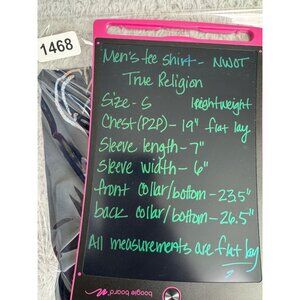 1468
Men's tee shirt - NWOT
True Religion
Size - S lightweight
Chest (P2P) - 19" flat lay
Sleeve length - 7"
Sleeve width - 6"
front collar/bottom - 23.5"
back collar/bottom - 26.5"
All measurements are flat lay
boogie board